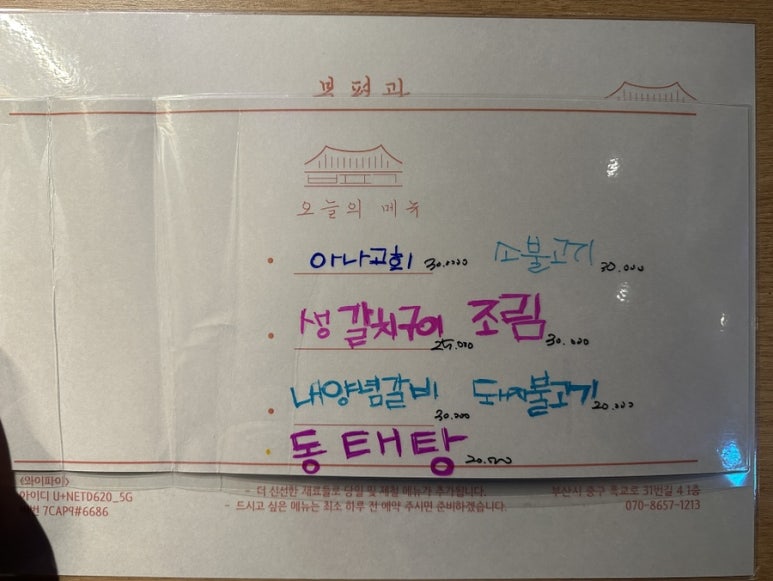 오늘의 메뉴
아나고회 30.000 소불고기 30.000
생갈치구이 25.000 조림 30.000
내양념갈비 30.000 돼지불고기 20.000
동태탕 20.500
<와이파이>
아이디 U+NETD620_5G
7CAP9#6686
- 더 신선한 재료들로 당일 및 제철 메뉴가 추가됩니다.
- 드시고 싶은 메뉴는 최소 하루 전 예약 주시면 준비하겠습니다.
부산시 중구 흑교로 31번길 4 1층
070-8657-1213